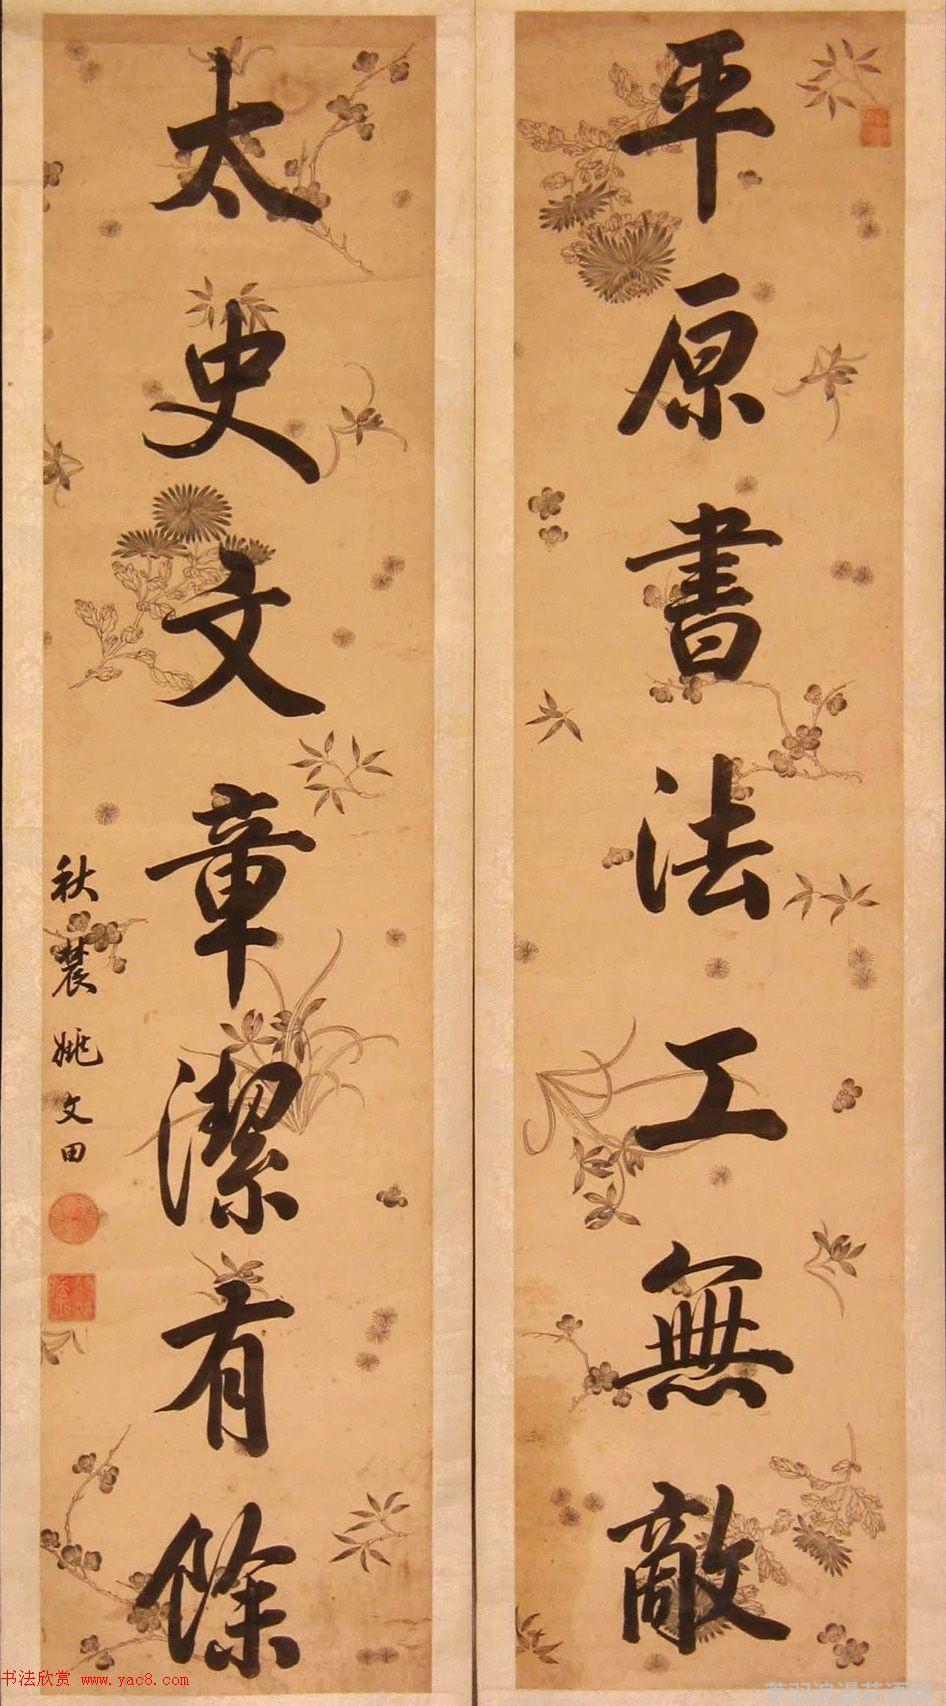 平原書法工無敵
太史文章潔有餘
秋農姚文田
书法欣赏 www.yac8.com